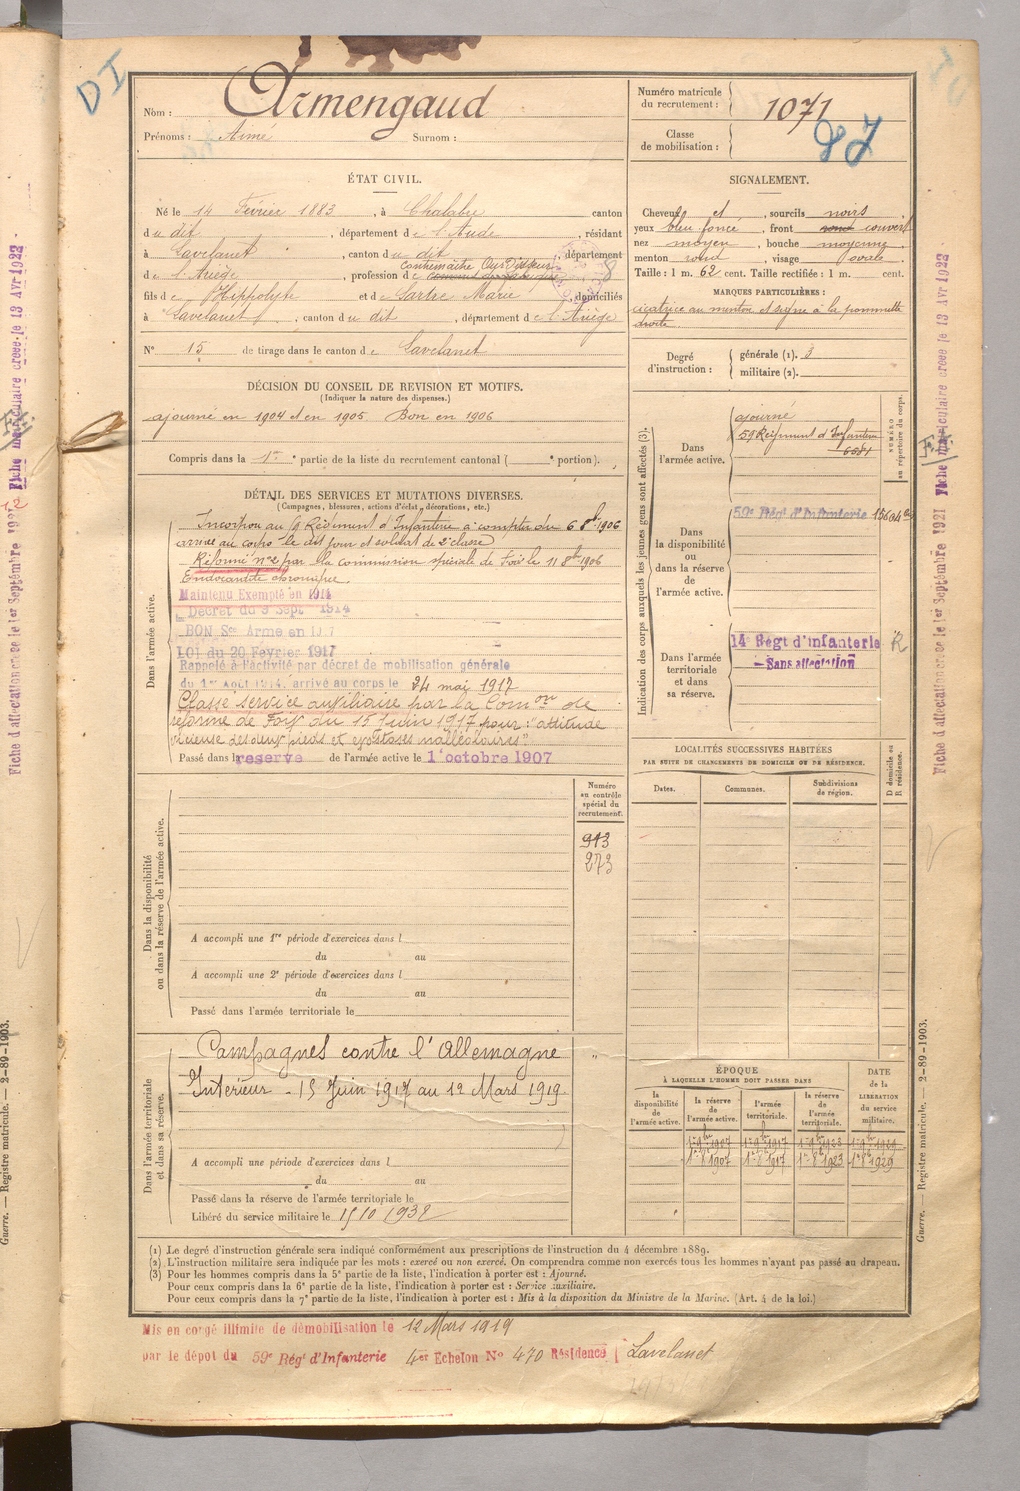 DI
Nom : Armengaud
Prénoms : Aimé Surnom :
Numéro matricule du recrutement : 1071
Classe de mobilisation :
ÉTAT CIVIL.
Né le 14 Février 1883, à Chalabre canton
du dit, département de l'Aude, résidant
à Lavelanet, canton du dit département
de l'Ariège, profession de Contremaître Ourdisseur
fils de Hippolyte et de Sartre Marie domiciliés
à Lavelanet, canton du dit, département de l'Ariège
N° 15 de tirage dans le canton de Lavelanet
SIGNALEMENT.
Cheveux et, sourcils noirs
yeux bleu foncé, front rond couvert
nez moyen, bouche moyenne
menton rond, visage ovale
Taille : 1 m. 62 cent. Taille rectifiée : 1 m. cent.
MARQUES PARTICULIÈRES :
cicatrice au menton et signe à la pommette
droite
Degré d'instruction : générale (1). 3
militaire (2).
DÉCISION DU CONSEIL DE REVISION ET MOTIFS.
(Indiquer la nature des dispenses.)
ajourné en 1904 et en 1905 Bon en 1906
Compris dans la 1re partie de la liste du recrutement cantonal ( portion).
DÉTAIL DES SERVICES ET MUTATIONS DIVERSES.
(Campagnes, blessures, actions d'éclat, décorations, etc.)
Dans l'armée active.
Incorporé au Régiment d'Infanterie à compter du 6 8bre 1906
arrivé au corps le dit jour et soldat de 2e classe
Réformé n°2 par la commission spéciale de Foix le 11 8bre 1906
Endocardite chronique
Maintenu Exempté en 1914
Décret du 9 Sept 1914
BON Sce Armé en 1917
LOI du 20 Février 1917
Rappelé à l'activité par décret de mobilisation générale
du 1er Août 1914, arrivé au corps le 24 mai 1917
Classé service auxiliaire par la Comon de
réforme de Foix du 15 Juin 1917 pour : "attitude
vicieuse des deux pieds et exostoses malléolaires"
Passé dans la reserve de l'armée active le 1 octobre 1907
Indication des corps auxquels les jeunes gens sont affectés (3).
NUMÉRO au répertoire du corps.
Dans l'armée active.
ajourné
59 Régiment d'Infanterie
6581
Dans la disponibilité ou dans la réserve de l'armée active.
59e Régt d'Infanterie 15604
Dans l'armée territoriale et dans sa réserve.
14 Regt d'infanterie R
Sans affectation
LOCALITÉS SUCCESSIVES HABITÉES
PAR SUITE DE CHANGEMENTS DE DOMICILE OU DE RÉSIDENCE.
Dates. Communes. Subdivisions de région. D domicile ou R résidence.
Dans la disponibilité ou dans la réserve de l'armée active.
Numéro au contrôle spécial du recrutement.
913
273
A accompli une 1re période d'exercices dans l
du au
A accompli une 2e période d'exercices dans l
du au
Passé dans l'armée territoriale le
Dans l'armée territoriale et dans sa réserve.
Campagnes contre l'Allemagne
Intérieur - 15 Juin 1917 au 12 Mars 1919
A accompli une période d'exercices dans l
du au
Passé dans la réserve de l'armée territoriale le
Libéré du service militaire le 15 10 1932
ÉPOQUE
À LAQUELLE L'HOMME DOIT PASSER DANS
DATE de la LIBÉRATION du service militaire.
la disponibilité de l'armée active. la réserve de l'armée active. l'armée territoriale. la réserve de l'armée territoriale.
1er 9bre 1907 1er 9bre 1917 1er 9bre 1923 1er 9bre 1929
1er 8 1907 1er 8 1917 1er 8 1923 1er 8 1929
(1) Le degré d'instruction générale sera indiqué conformément aux prescriptions de l'instruction du 4 décembre 1889.
(2) L'instruction militaire sera indiquée par les mots : exercé ou non exercé. On comprendra comme non exercés tous les hommes n'ayant pas passé au drapeau.
(3) Pour les hommes compris dans la 5e partie de la liste, l'indication à porter est : Ajourné.
Pour ceux compris dans la 6e partie de la liste, l'indication à porter est : Service auxiliaire.
Pour ceux compris dans la 7e partie de la liste, l'indication à porter est : Mis à la disposition du Ministre de la Marine. (Art. 4 de la loi.)
Mis en congé illimité de démobilisation le 12 Mars 1919
par le dépot du 59e Régt d'Infanterie 4er Echelon N° 470 Résidence Lavelanet
Fiche d'affectation créée le 1er Septembre 1921 Fiche matriculaire créée le 13 Avr 1922
Guerre. — Registre matricule. — 2-89-1903.
Fiche d'affectation créée le 1er Septembre 1921 Fiche matriculaire créée le 13 Avr 1922
Guerre. — Registre matricule. — 2-89-1903.